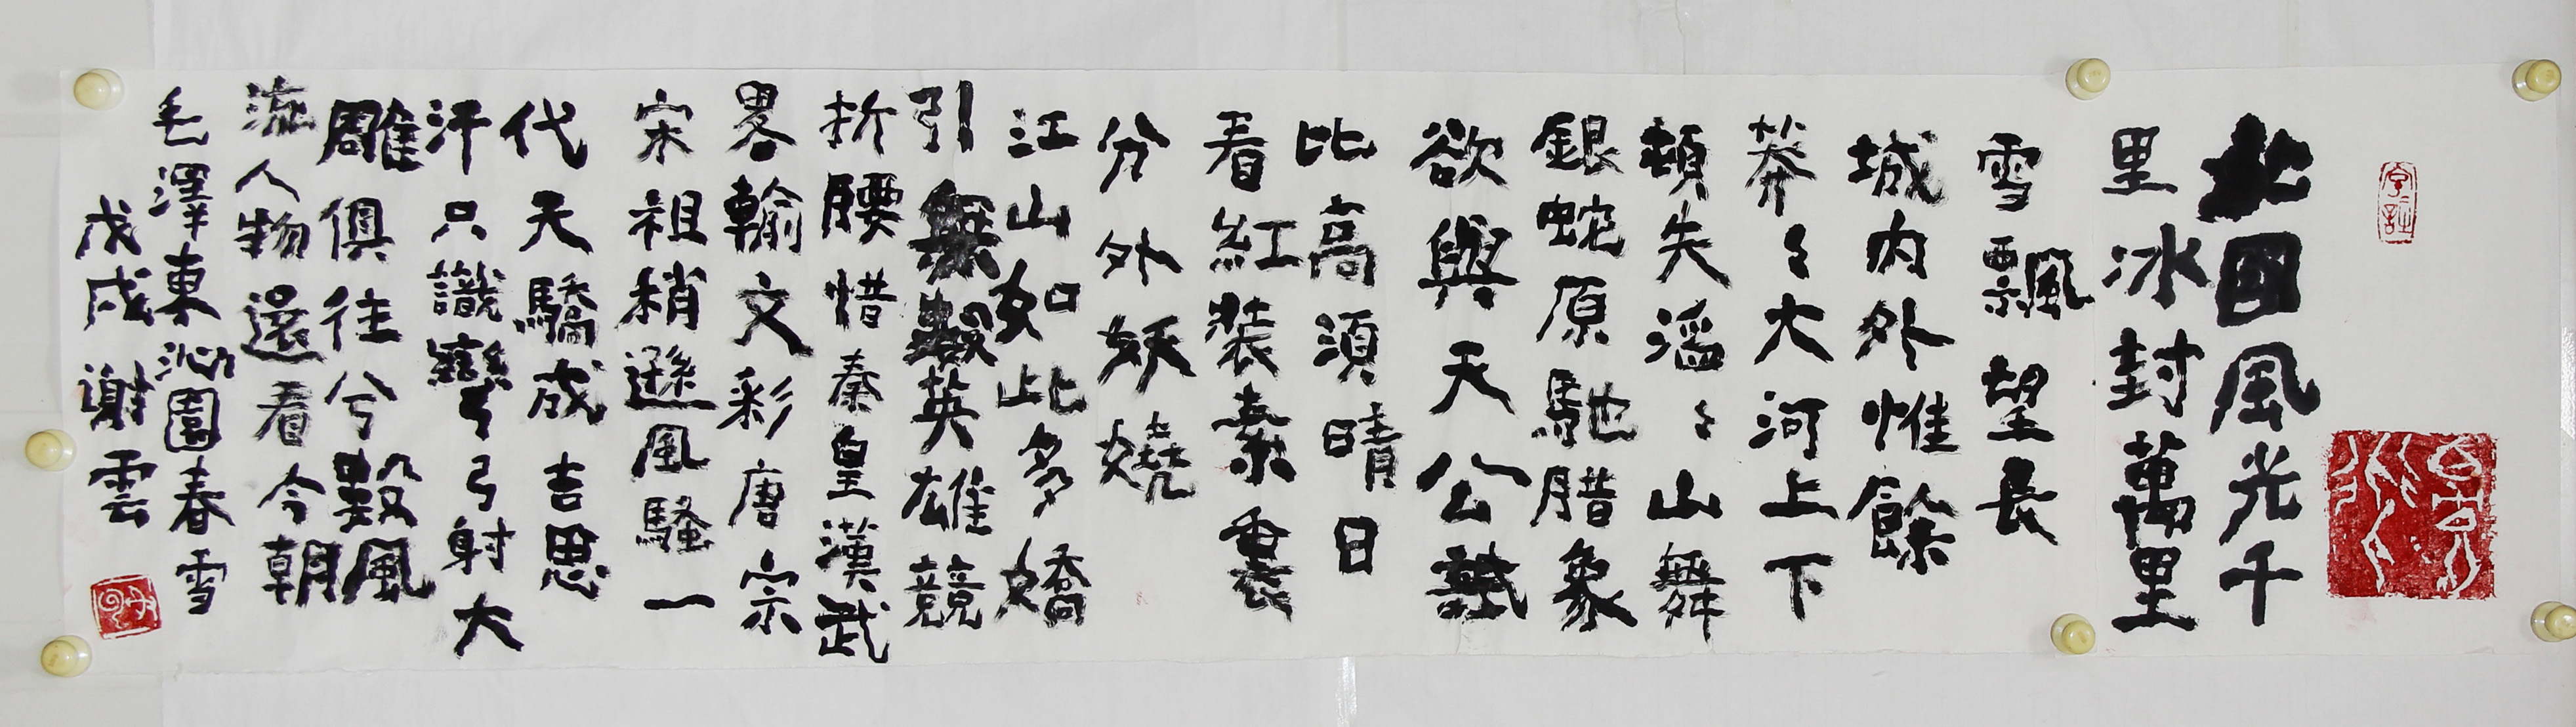 北國風光千
里冰封萬里
雪飄望長
城内外惟餘
莽〻大河上下
頓失滔〻山舞
銀蛇原馳腊象
欲與天公試
比高須晴日
看紅装素裹
分外妖嬈
江山如此多嬌
引無數英雄競
折腰惜秦皇漢武
畧輸文彩唐宗
宋祖稍遜風騷一
代天驕成吉思
汗只識彎弓射大
雕俱往兮數風
流人物還看今朝
毛澤東沁園春雪
戊戌謝雲